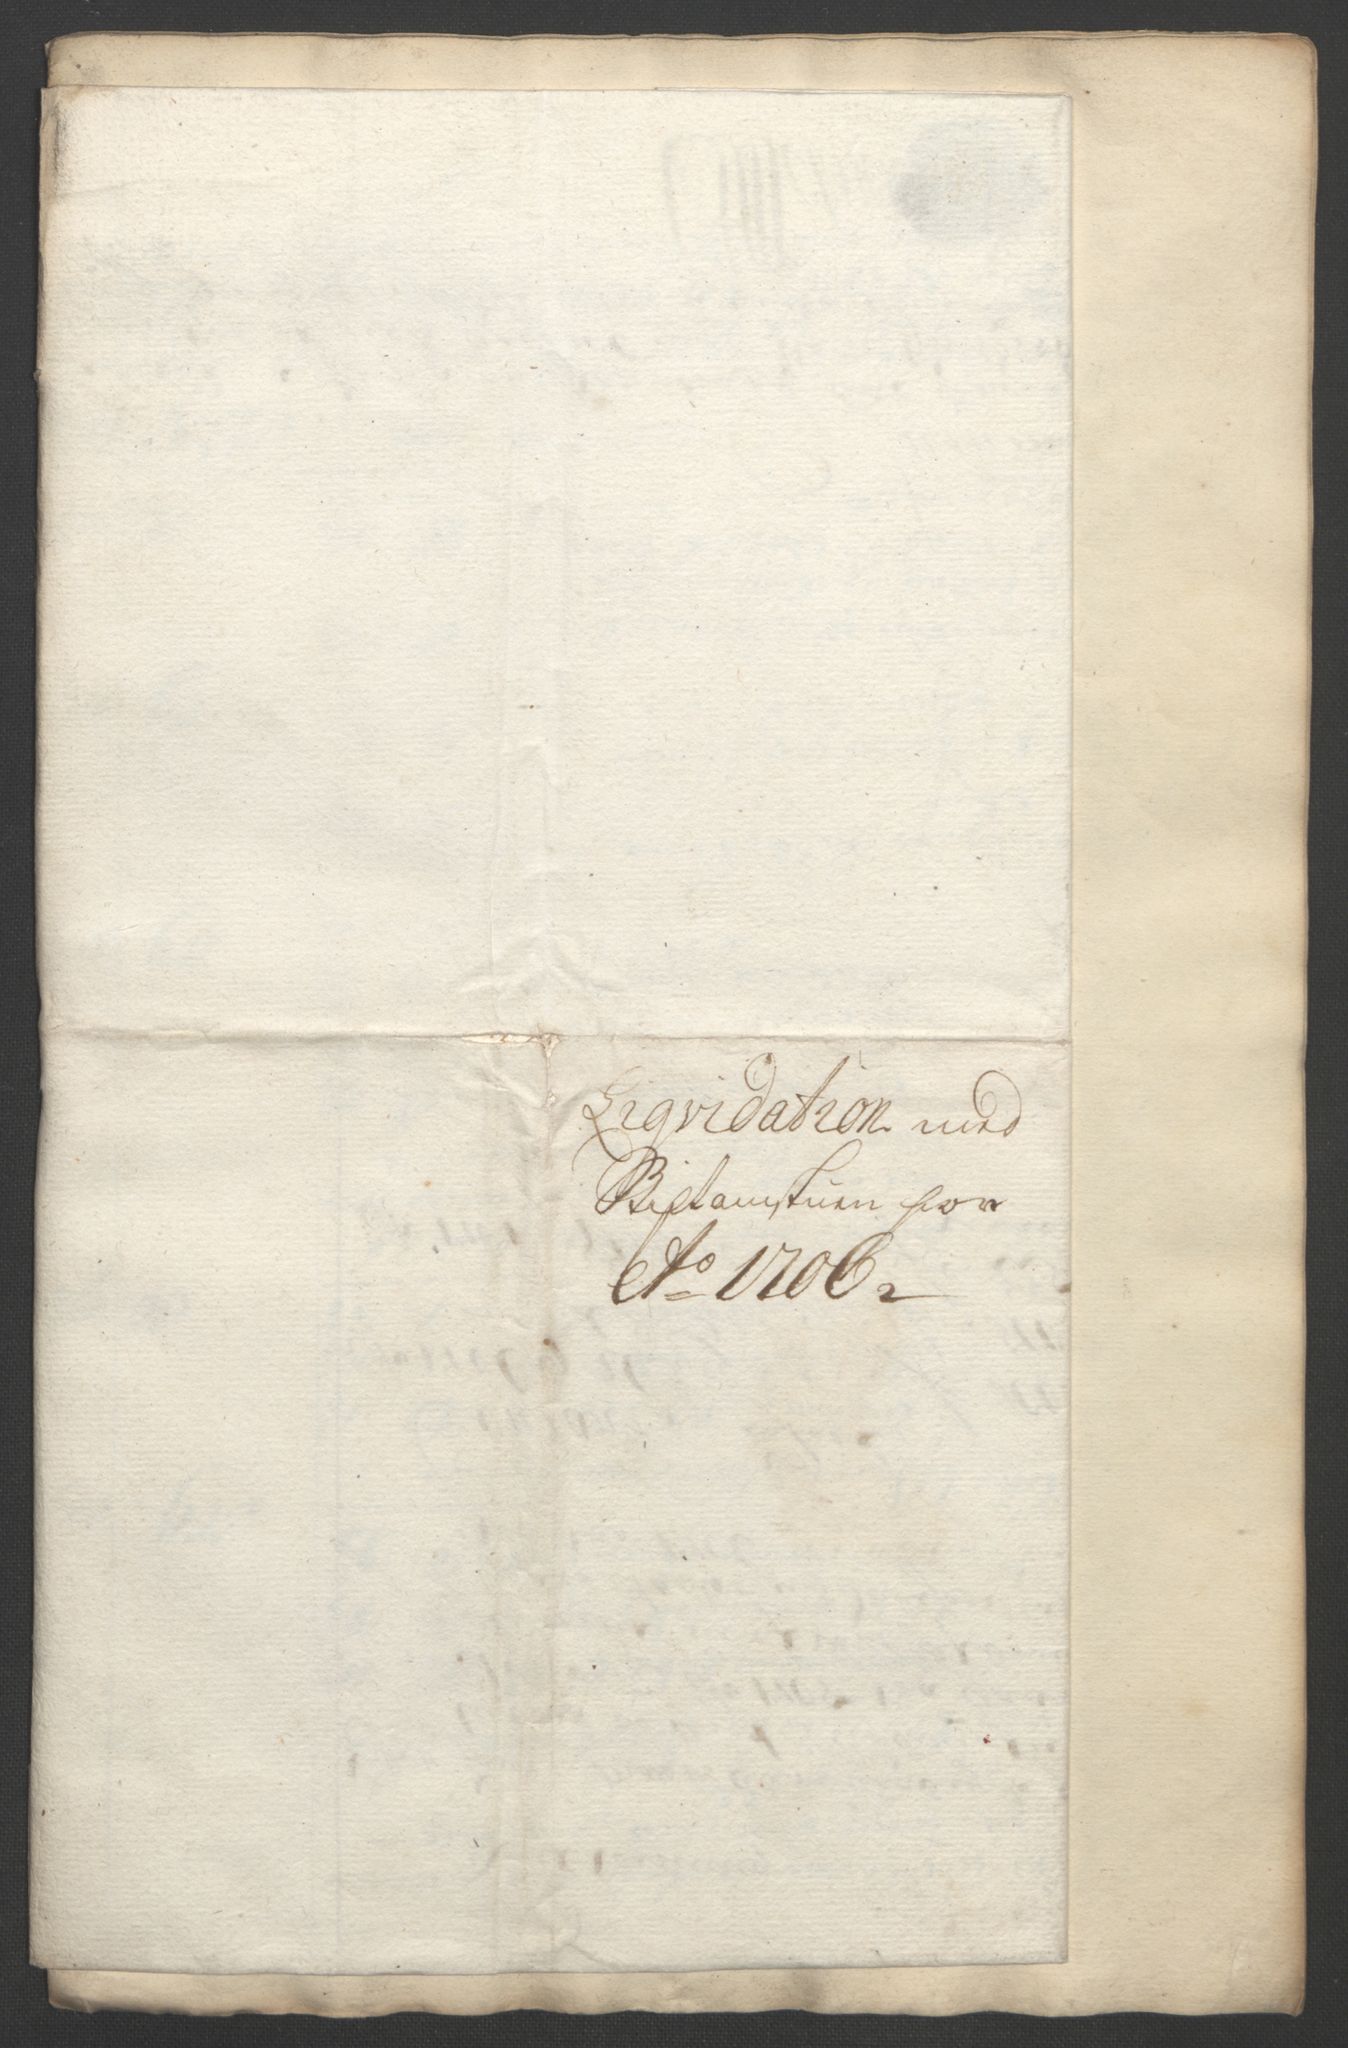 Liqvidation med
RifTamstuen for
Ao 1706